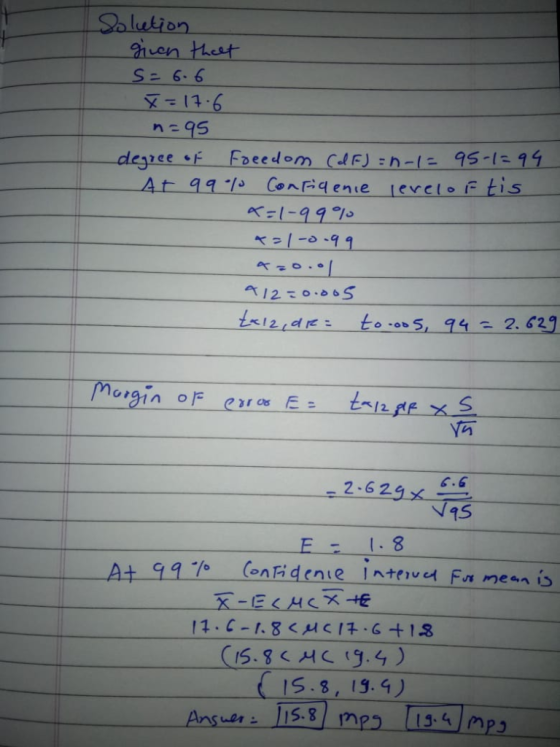 Solution
given that
S = 6.6
x̄ = 17.6
n = 95
degree of Freedom (dF) = n-1 = 95-1 = 94
At 99% Confidence level of t is
α = 1-99%
α = 1-0.99
α = 0.01
α/2 = 0.005
tα/2,dF = t0.005, 94 = 2.629
Margin of error E = tα/2,dF × S/√n
= 2.629 × 6.6/√95
E = 1.8
At 99% Confidence interval For mean is
x̄ - E < μ < x̄ + E
17.6 - 1.8 < μ < 17.6 + 1.8
(15.8 < μ < 19.4)
(15.8, 19.4)
Answer = 15.8 mpg 19.4 mpg